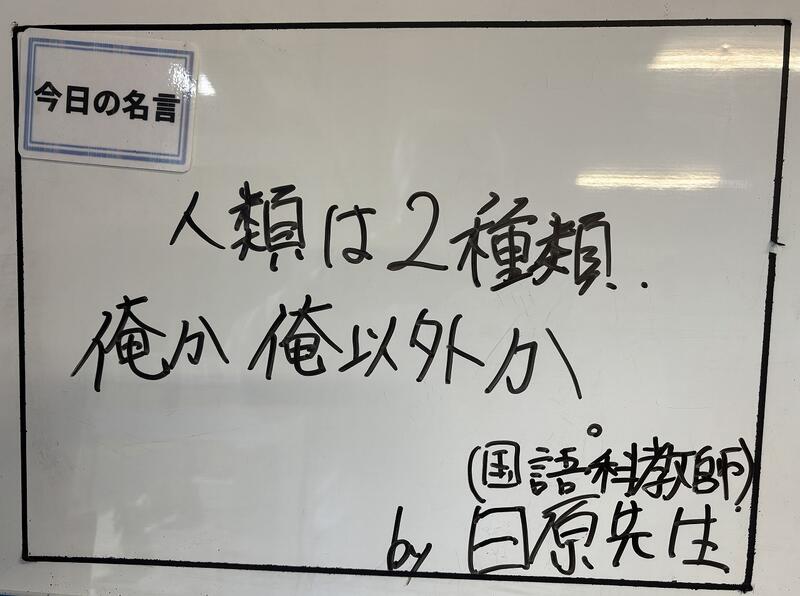 今日の名言
人類は2種類.
俺か 俺以外か。
(国語科教師)
by 日原先生